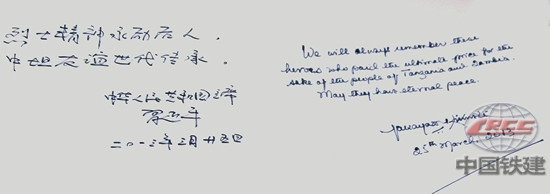 烈士精神永励后人，
中坦友谊世代传承。
中华人民共和国主席
习近平
二〇一三年三月廿五日
We will always remember these
heroes who paid the ultimate price for the
sake of the people of Tanzania and Zambia.
May they have eternal peace.
25th March, 2013
CRCC
中国铁建